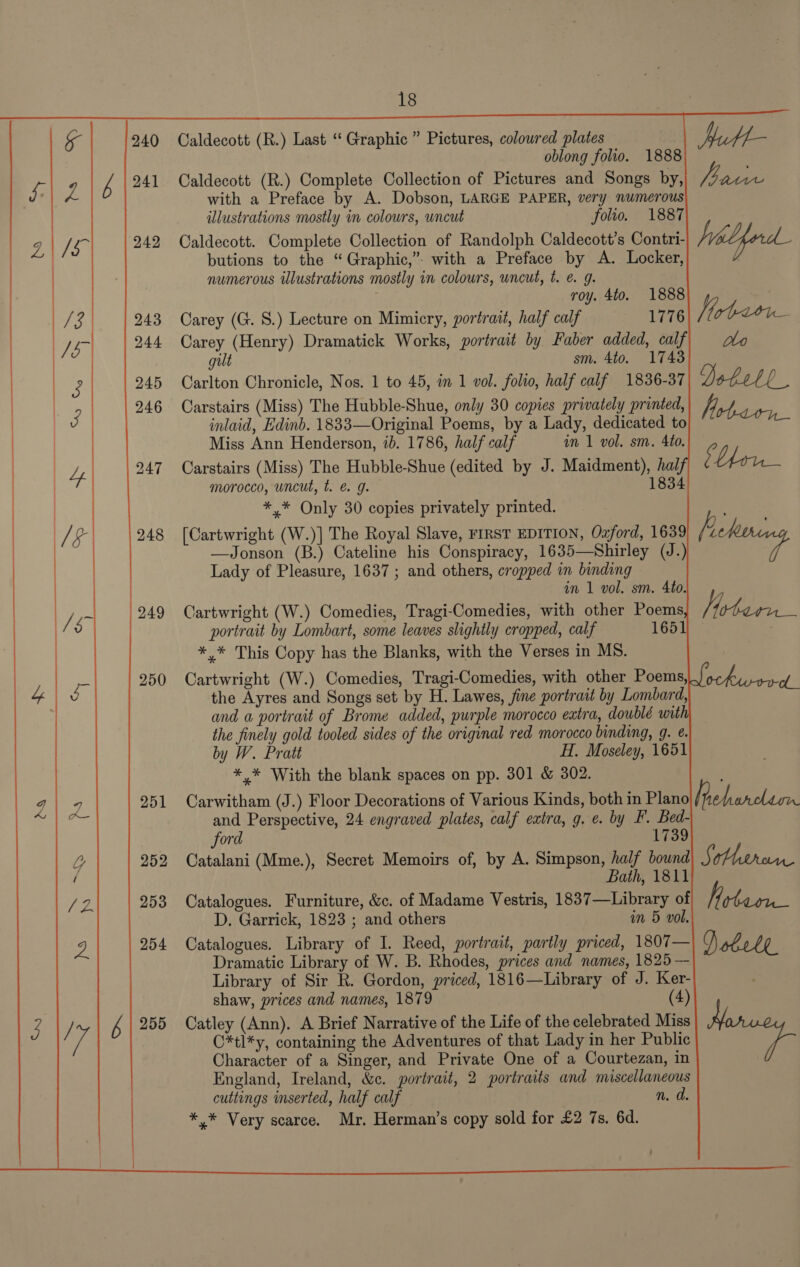 18
8 240 Caldecott (R.) Last “Graphic” Pictures, coloured plates Hutt
oblong folio. 1888
5 2 6 241 Caldecott (R.) Complete Collection of Pictures and Songs by, Bain
with a Preface by A. Dobson, LARGE PAPER, very numerous
illustrations mostly in colours, uncut folio. 1887
2 15 242 Caldecott. Complete Collection of Randolph Caldecott’s Contri- Walford
butions to the “Graphic,” with a Preface by A. Locker,
numerous illustrations mostly in colours, uncut, t. e. g.
roy. 4to. 1888
13 243 Carey (G. S.) Lecture on Mimicry, portrait, half calf 1776 Hobson
15 244 Carey (Henry) Dramatick Works, portrait by Faber added, calf do
gilt sm. 4to. 1743
3 245 Carlton Chronicle, Nos. 1 to 45, in 1 vol. folio, half calf 1836-37 Dobell
3 246 Carstairs (Miss) The Hubble-Shue, only 30 copies privately printed, Hobson
inlaid, Edinb. 1833—Original Poems, by a Lady, dedicated to
Miss Ann Henderson, ib. 1786, half calf in 1 vol. sm. 4to.
4 247 Carstairs (Miss) The Hubble-Shue (edited by J. Maidment), half Elton
morocco, uncut, t. e. g. 1834
*⁎* Only 30 copies privately printed.
18 248 [Cartwright (W.)] The Royal Slave, FIRST EDITION, Oxford, 1639 Pickering
—Jonson (B.) Cateline his Conspiracy, 1635—Shirley (J.)
Lady of Pleasure, 1637; and others, cropped in binding
in 1 vol. sm. 4to.
15 249 Cartwright (W.) Comedies, Tragi-Comedies, with other Poems, Hobson
portrait by Lombart, some leaves slightly cropped, calf 1651
*⁎* This Copy has the Blanks, with the Verses in MS.
4 5 250 Cartwright (W.) Comedies, Tragi-Comedies, with other Poems, Lockwood
the Ayres and Songs set by H. Lawes, fine portrait by Lombard,
and a portrait of Brome added, purple morocco extra, doublé with
the finely gold tooled sides of the original red morocco binding, g. e.
by W. Pratt H. Moseley, 1651
*⁎* With the blank spaces on pp. 301 & 302.
2 2 251 Carwitham (J.) Floor Decorations of Various Kinds, both in Plano Richardson
and Perspective, 24 engraved plates, calf extra, g. e. by F. Bed-
ford 1739
9 252 Catalani (Mme.), Secret Memoirs of, by A. Simpson, half bound Sotheran
Bath, 1811
12 253 Catalogues. Furniture, &c. of Madame Vestris, 1837—Library of Hobson
D. Garrick, 1823; and others in 5 vol.
2 254 Catalogues. Library of I. Reed, portrait, partly priced, 1807— Dobell
Dramatic Library of W. B. Rhodes, prices and names, 1825—
Library of Sir R. Gordon, priced, 1816—Library of J. Ker-
shaw, prices and names, 1879 (4)
3 17 6 255 Catley (Ann). A Brief Narrative of the Life of the celebrated Miss Harvey
C*tl*y, containing the Adventures of that Lady in her Public
Character of a Singer, and Private One of a Courtezan, in
England, Ireland, &c. portrait, 2 portraits and miscellaneous
cuttings inserted, half calf n. d.
*⁎* Very scarce. Mr. Herman’s copy sold for £2 7s. 6d.